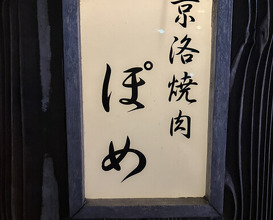 京洛焼肉
ぽめ